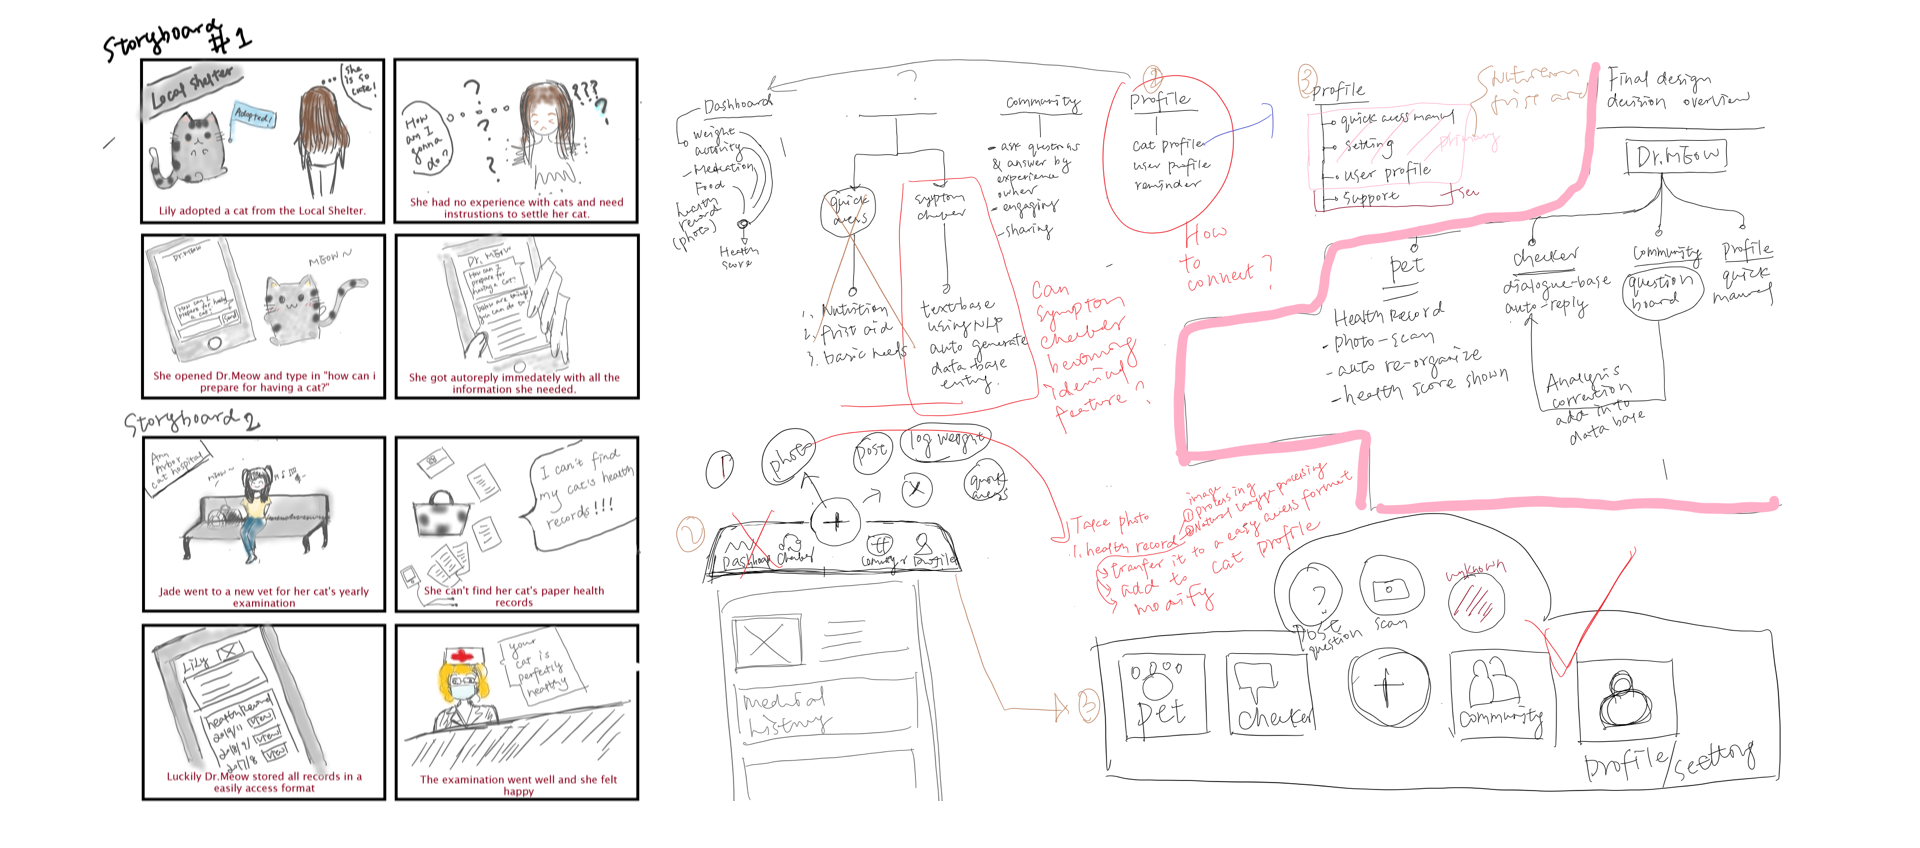 Storyboard
#1
Local Shelter
Adopted!
She
is so
cute!
Lily adopted a cat from the Local Shelter.
How
am I
gonna
do?
? ? ? ???
She had no experience with cats and need
instrustions to settle her cat.
Dr.MEOW
How can I
prepare for having
a cat?
Send
MEOW~
She opened Dr.Meow and type in "how can i
prepare for having a cat?"
Dr. MEOW
How can I
prepare for
having a cat?
below are things
you can do to
She got autoreply immediately with all the
information she needed.
Storyboard 2
Ann
Arbor
cat hospital
meow~
Jade went to a new vet for her cat's yearly
examination
I can't find
my cat's health
records!!!
She can't find her cat's paper health
records
LiLy
health record
2019/1 view
2018/2/ view
2017/8 view
Luckily Dr.Meow stored all records in a
easily access format
your
cat is
perfectly
healthy
The examination went well and she felt
happy
Dashboard
- Weight
- Medication
Food
health
record
(photo)
Health
score
?
quick
access
1. Nutrition
2. first aid
3. basic needs
symptom
checker
text-base
using NLP
auto generate
data-base
entry.
Community
- ask questions
& answer by
experience
owner
- engaging
- sharing
②
profile
cat profile
user profile
reminder
How
to
connect?
Can
symptom
checker
becoming
identical
feature?
③
profile
quick access manual
setting
user profile
support
primary
Nutrition
first aid
Final design
decision overview
Dr.MEOW
pet
Health Record
- photo-scan
- auto re-organize
- health score shown
checker
dialogue-base
auto-reply
Community
question
board
profile
quick
manual
Analysis
correction
add into
data base
①
photo
post
log weight
X
quick
access
+
②
Dashboard
Checker
Community
profile
Medical
history
Take photo
1. health record
image
① processing
② Natural language processing
transfer it to a easy access format
add to cat profile
modify
③
?
post
question
scan
unknown
pet
checker
+
community
profile/setting